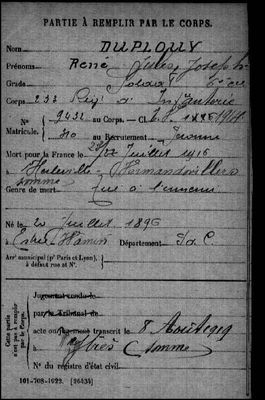 PARTIE À REMPLIR PAR LE CORPS.
Nom DUPLOUY
Prénoms René Jules Joseph
Grade Soldat 2e cl
Corps 233 Rég. d' Infanterie
Matricule. 9432 au Corps. — Cl. 1916
310 au Recrutement
Mort pour la France le Juillet 1916
Somme
Genre de mort tué à l'ennemi
Né le 20 Juillet 1896
à Estrée Département P. d. C.
Arrt municipal (pr Paris et Lyon),
à défaut rue et N°.
Cette partie n'est pas à remplir par le Corps.
Jugement rendu le
par le Tribunal de
acte ou jugement transcrit le 8 Août 1919
à (Somme)
N° du registre d'état civil
101-708-1922. [26434]